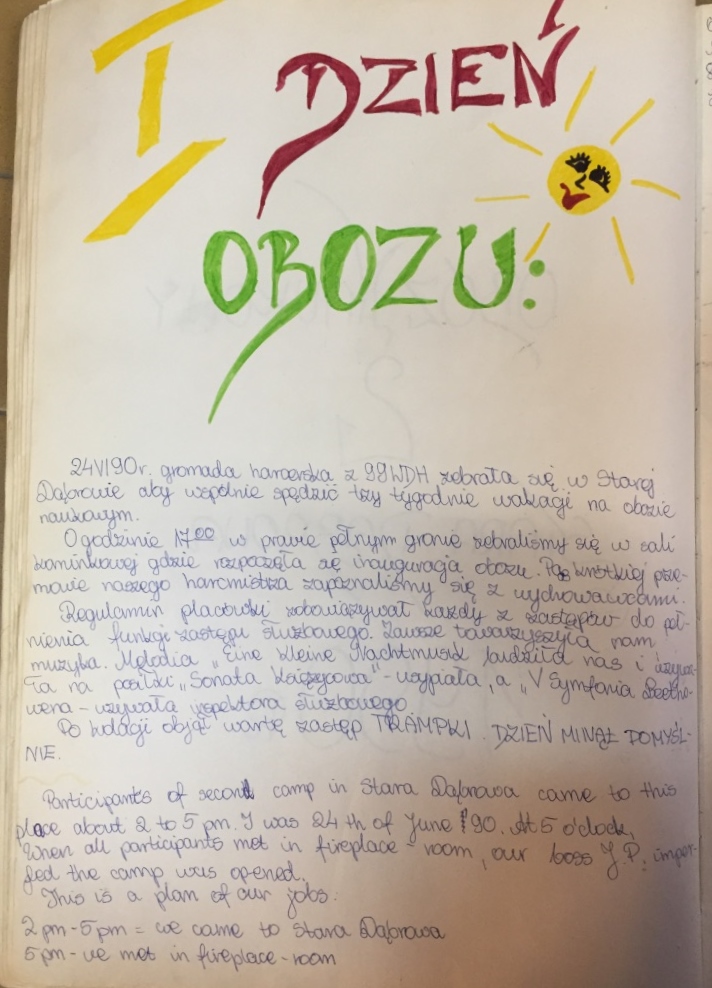 I DZIEŃ
OBOZU:
24VI90r. gromada harcerska z 99WDH zebrała się w Starej
Dąbrowie aby wspólnie spędzić trzy tygodnie wakacji na obozie
naukowym.
O godzinie 17⁰⁰ w prawie pełnym gronie zebraliśmy się w sali
kominkowej gdzie rozpoczęła się inauguracja obozu. Po krótkiej prze-
mowie naszego harcmistrza zapoznaliśmy się z wychowawcami.
Regulamin placówki zobowiązywał każdy z zastępów do peł-
nienia funkcji zastępu służbowego. Zawsze towarzyszyła nam
muzyka. Melodia „Eine kleine Nachtmusik budziła nas i wzywa-
ła na posiłki, „Sonata księżycowa" - usypiała, a „V Symfonia Beetho-
wena - wzywała inspektora służbowego
Po kolacji objął wartę zastęp TRAMPKI. DZIEŃ MINĄŁ POMYŚL-
NIE.
Participants of second camp in Stara Dąbrowa came to this
place about 2 to 5 pm. I was 24 th of June '90. At 5 o'clock,
When all participants met in fireplace-room, our boss J.P.
the camp was opened.
This is a plan of our jobs:
2 pm - 5 pm = we came to Stara Dąbrowa
5 pm - we met in fireplace-room